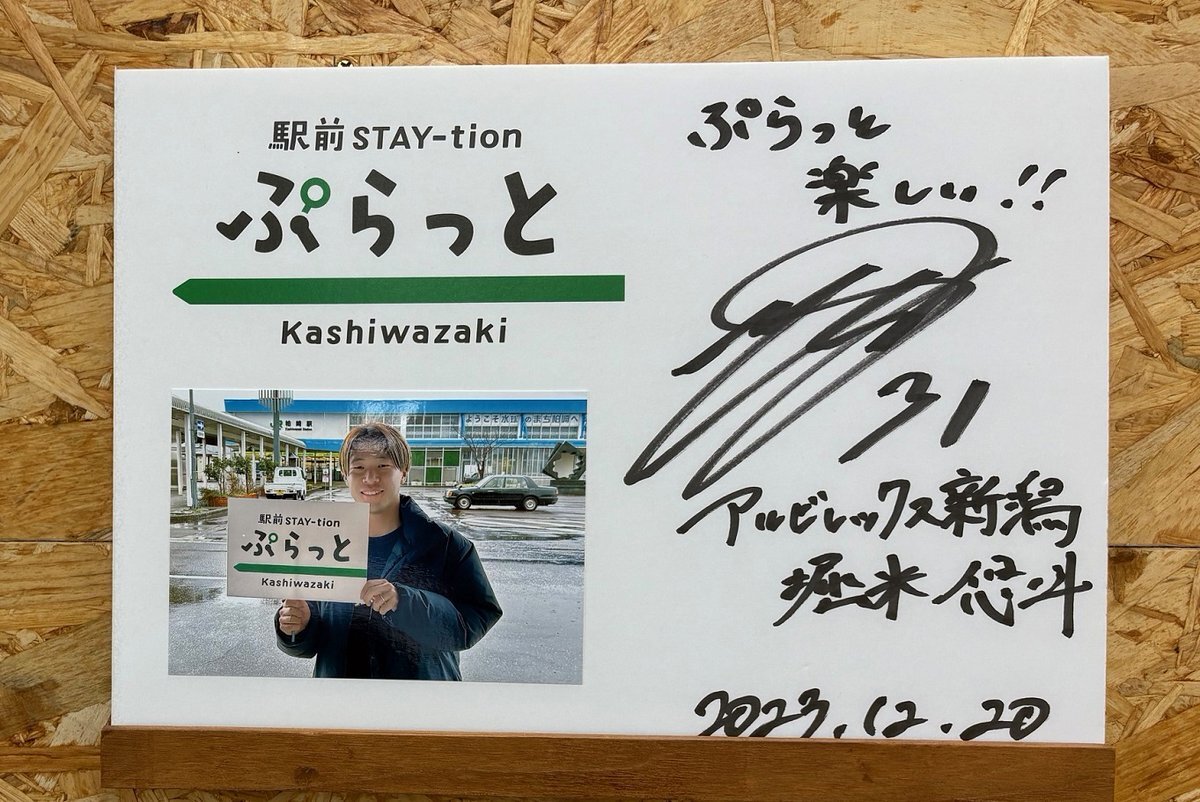 駅前 STAY-tion
ぷらっと
Kashiwazaki
ぷらっと
楽しい!!
31
アルビレックス新潟
堀米悠斗
2023.12.20
柏崎駅
ようこそ水球のまち柏崎へ
駅前 STAY-tion
ぷらっと
Kashiwazaki